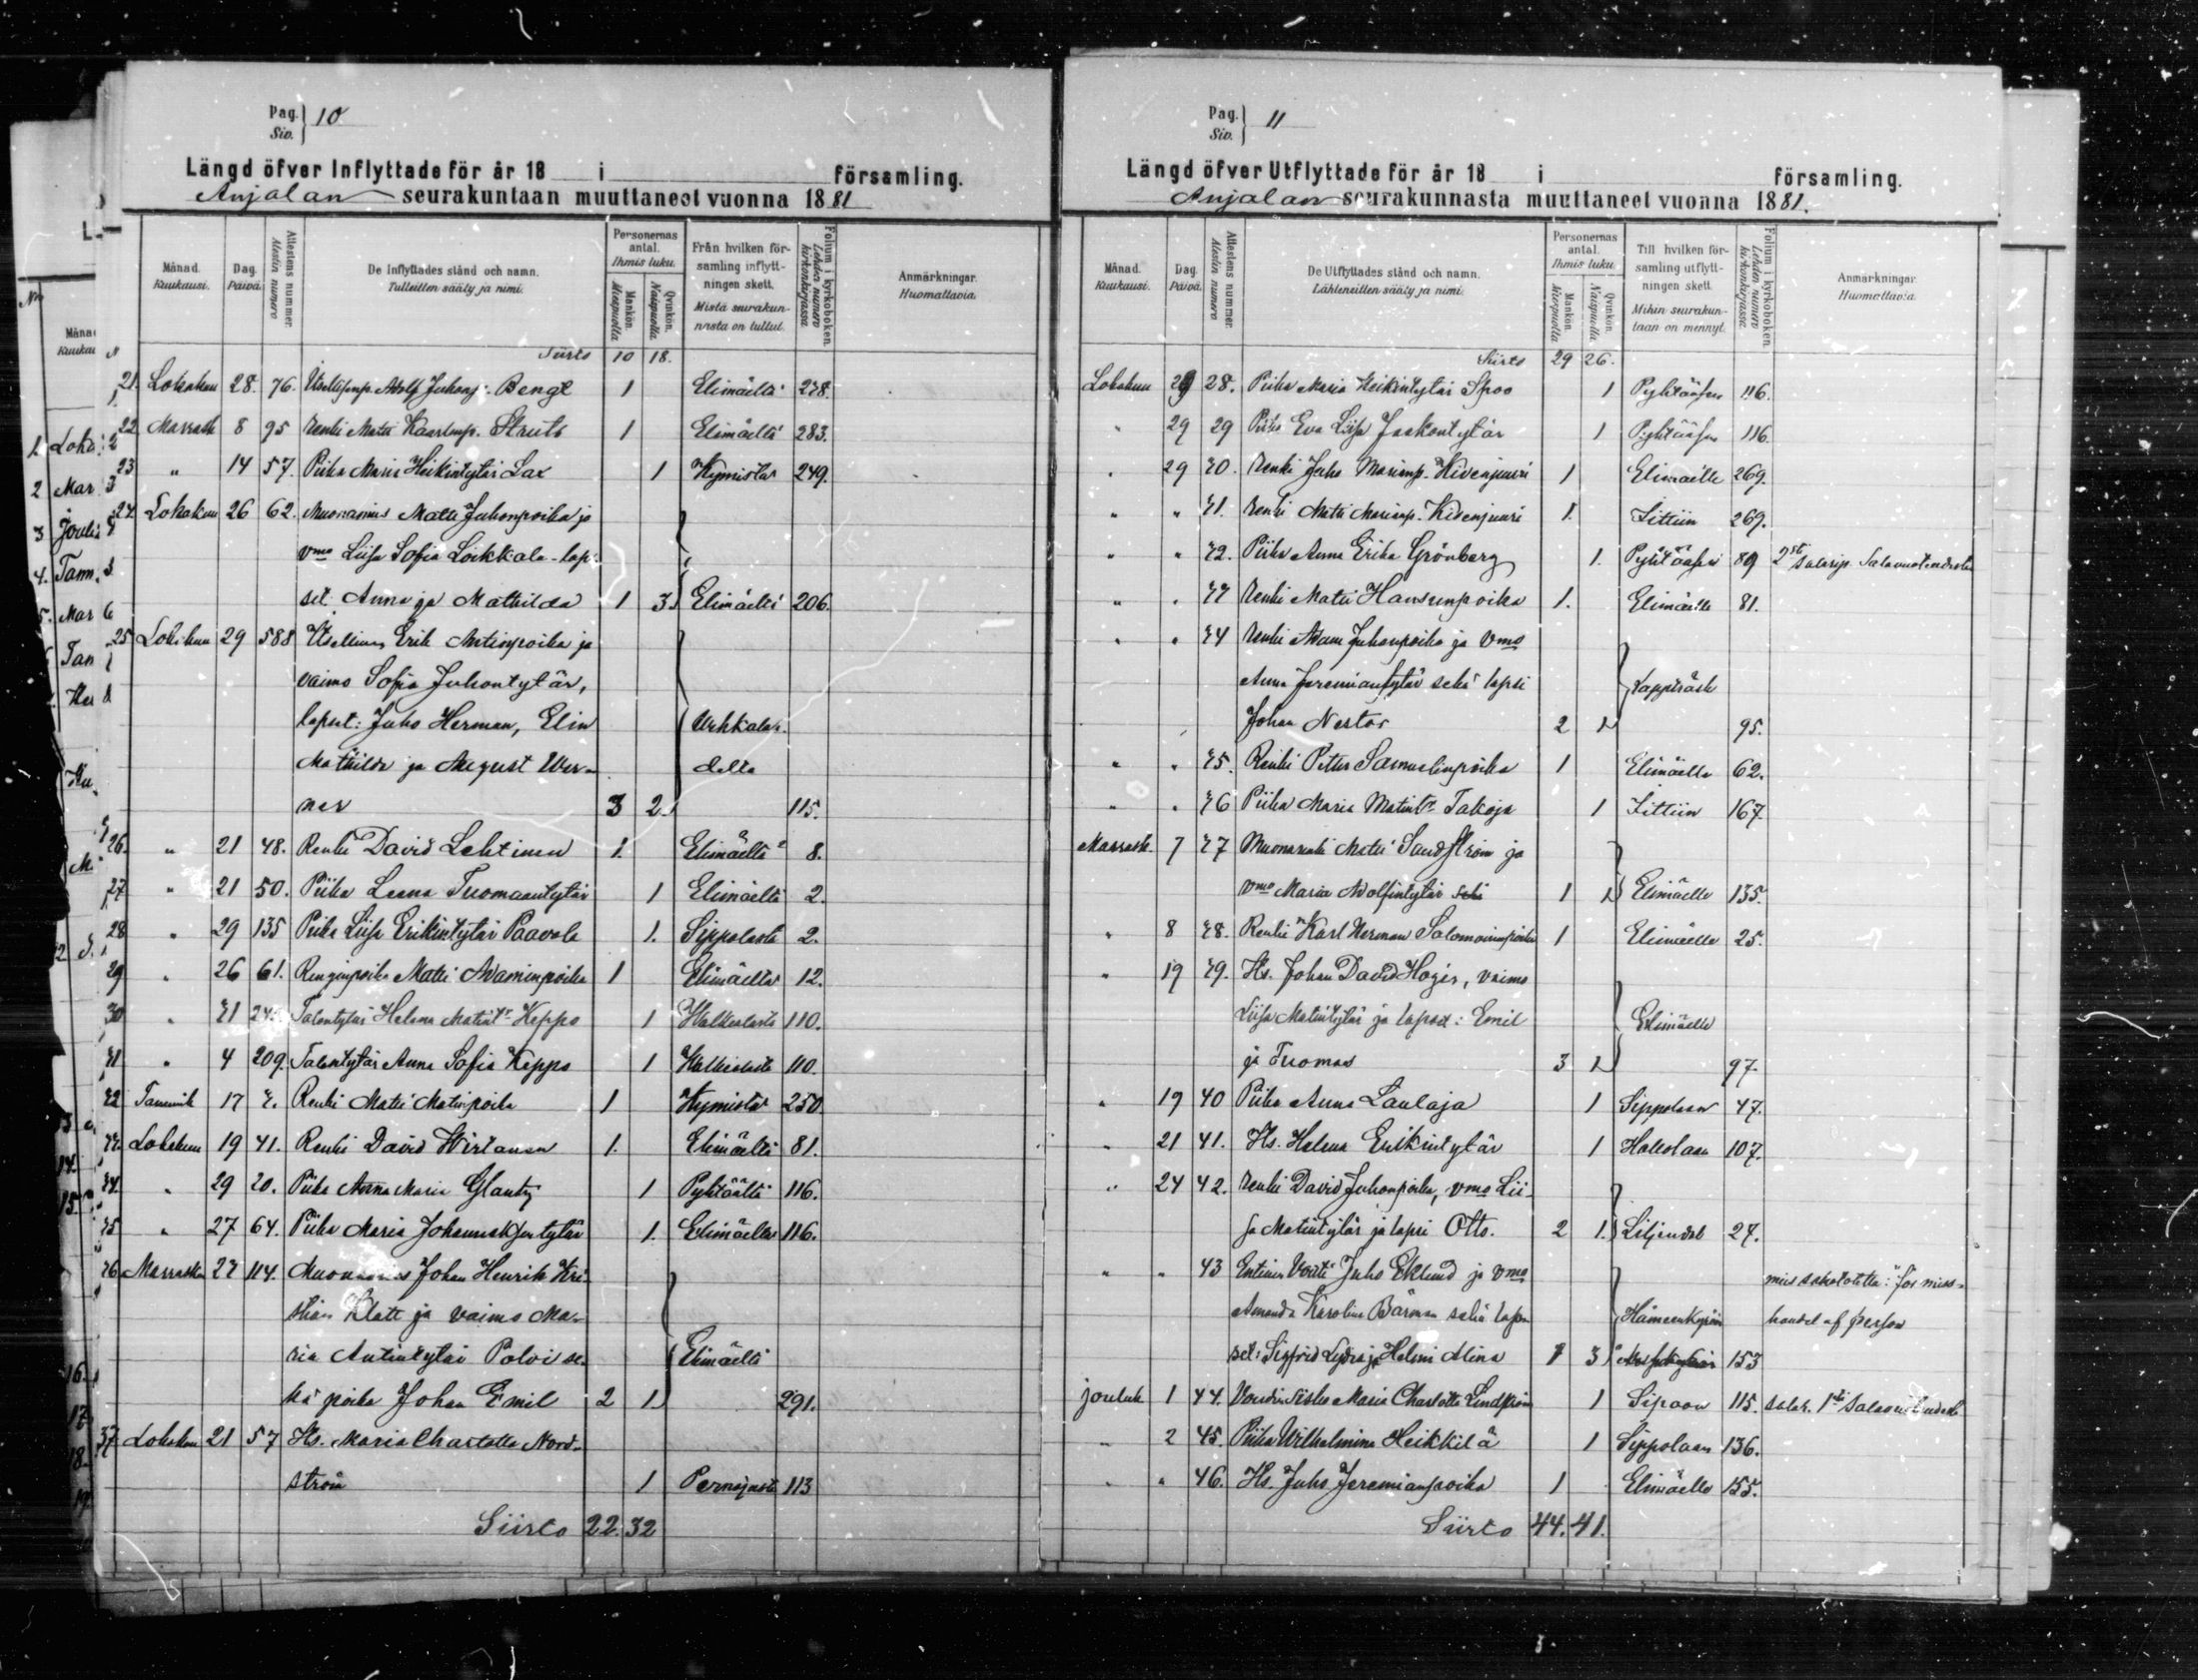 Pag. Siv. } 10
Längd öfver Inflyttade för år 18 i församling.
Anjalan seurakuntaan muuttaneet vuonna 1881
Månad. Kuukausi.
Dag. Päivä.
Attestens nummer. Atestin numero
De Inflyttades stånd och namn. Tulleitten sääty ja nimi.
Personernas antal. Ihmis luku.
Mankön. Miespuolia
Qvinkön. Naispuolia
Från hvilken församling inflyttningen skett. Mistä seurakunnasta on tullut.
Folium i kyrkoboken. Lehden numero kirkonkirjassa.
Anmärkningar. Huomattavia.
Siirto 10 18.
21. Lokakuu 28. 76. Adolf Juhonp. Bengt 1 Elimäeltä 278.
22 Marrask 8 95 Renki Matti Kaarlenp. Struts 1 Elimäeltä 283.
23 " 14 57. Piika Maria Heikintytär Lax 1 Kymistä 249.
24. Lokakuu 26 62. Muonamies Matti Juhonpoika ja
vmo Liisa Sofia Loikkala lap-
set Anna ja Mathilda 1 3 Elimäeltä 206.
25 Lokakuu 29 588 Itsellinen Erik Antinpoika ja
vaimo Sofia Juhontytär,
lapset: Juho Herman, Elin Uukkala-
Mathilda ja August Wer- delta
ner 3 2 115.
26. " 21 48. Renki David Lehtinen 1. Elimäeltä 8.
27 " 21 50. Piika Leena Tuomaantytär 1 Elimäeltä 2.
28 " 29 135 Piika Liisa Erikintytär Paavola 1. Sippolasta 2.
29 " 26 61. Renginpoika Matti Adaminpoika 1 Elimäeltä 12.
30 " 31 Talontytär Helena Matint. Keppo 1 Walkealasta 110.
31 " 4 209. Talontytär Anna Sofia Keppo 1 Walkealasta 110.
32 Tammik 17 3. Renki Matti Matinpoika 1 Kymistä 250
33. Lokakuu 19 41. Renki David Wirtanen 1. Elimäeltä 81.
34. " 29 20. Piika Anna Maria Glantz 1 Pyhtäältä 116.
35 " 27 64. Piika Maria Johanneksentytär 1. Elimäeltä 116.
36 Marraskuu 23 114. Muonamies Johan Henrik Kri-
stian Klatt ja vaimo Ma-
ria Antintytär Polvi se- Elimäeltä
kä poika Johan Emil 2 1 291.
37 Lokakuu 21 57 Hs. Maria Charlotta Nord-
ström 1 Pernajasta 113
Siirto 22. 32
Pag. Siv. } 11
Längd öfver Utflyttade för år 18 i församling.
Anjalan seurakunnasta muuttaneet vuonna 1881.
Månad. Kuukausi.
Dag. Päivä.
Attestens nummer. Atestin numero
De Utflyttades stånd och namn. Lähteneitten sääty ja nimi.
Personernas antal. Ihmis luku.
Mankön. Miespuolia
Qvinkön. Naispuolia
Till hvilken församling utflyttningen skett. Mihin seurakuntaan on mennyt.
Folium i kyrkoboken. Lehden numero kirkonkirjassa.
Anmärkningar. Huomattavia.
Siirto 29 26.
Lokakuu 29 28. Piika Maria Heikintytär Spoo 1 Pyhtääsen 116.
" 29 29 Piika Eva Liisa Jaakontytär 1 Pyhtääsen 116.
" 29 30. Renki Juho Marianp. Kivenjuuri 1 Elimäelle 269.
" " 31. Renki Matti Marianp. Kivenjuuri 1. Iittiin 269.
" " 32. Piika Anna Erika Grönberg 1. Pyhtääsen 89 2sti salavuoteudesta
" " 33 Renki Matti Hansunpoika 1. Elimäelle 81.
" " 34 Renki Adam Juhonpoika ja vmo
Anna Jeremiantytär sekä lapsi Lappträsk
Johan Nestor 2 1 95.
" " 35. Renki Petter Samuelinpoika 1 Elimäelle 62.
" " 36 Piika Maria Matint. Takoja 1 Iittiin 167.
Marrask. 7 37 Muonarenki Matti Sandström ja
vmo Maria Adolfintytär sekä 1 1 Elimäelle 135.
" 8 38. Renki Karl Herman Salomoninpoika 1 Elimäelle 25.
" 19 39. Hs. Johan David Höger, vaimo
Liisa Matintytär ja lapset: Emil Elimäelle
ja Tuomas 3 1 97.
" 19 40 Piika Anna Laulaja 1 Sippolaan 47.
" 21 41. Hs. Helena Erikintytär 1 Hollolaan 107.
" 24 42. Renki David Juhonpoika, vmo Lii-
sa Matintytär ja lapsi Otto. 2 1. Liljendal 27.
" " 43 Entinen Vouti Juho Eklund ja vmo
Amanda Karolina Bärman sekä lap- Hämeenkyrön för miss-
set: Sigfrid Lydia ja Helmi Alina 1 3 153 handel af person
jouluk 1 44. Voudin Sisko Maria Charlotta Lindström 1 Sipoon 115. salak. 1sti salavuoteudesta
" 2 45. Piika Wilhelmina Heikkilä 1 Sippolaan 136.
" " 46. Hs. Juho Jeremianpoika 1 Elimäelle 155.
Siirto 44. 41.